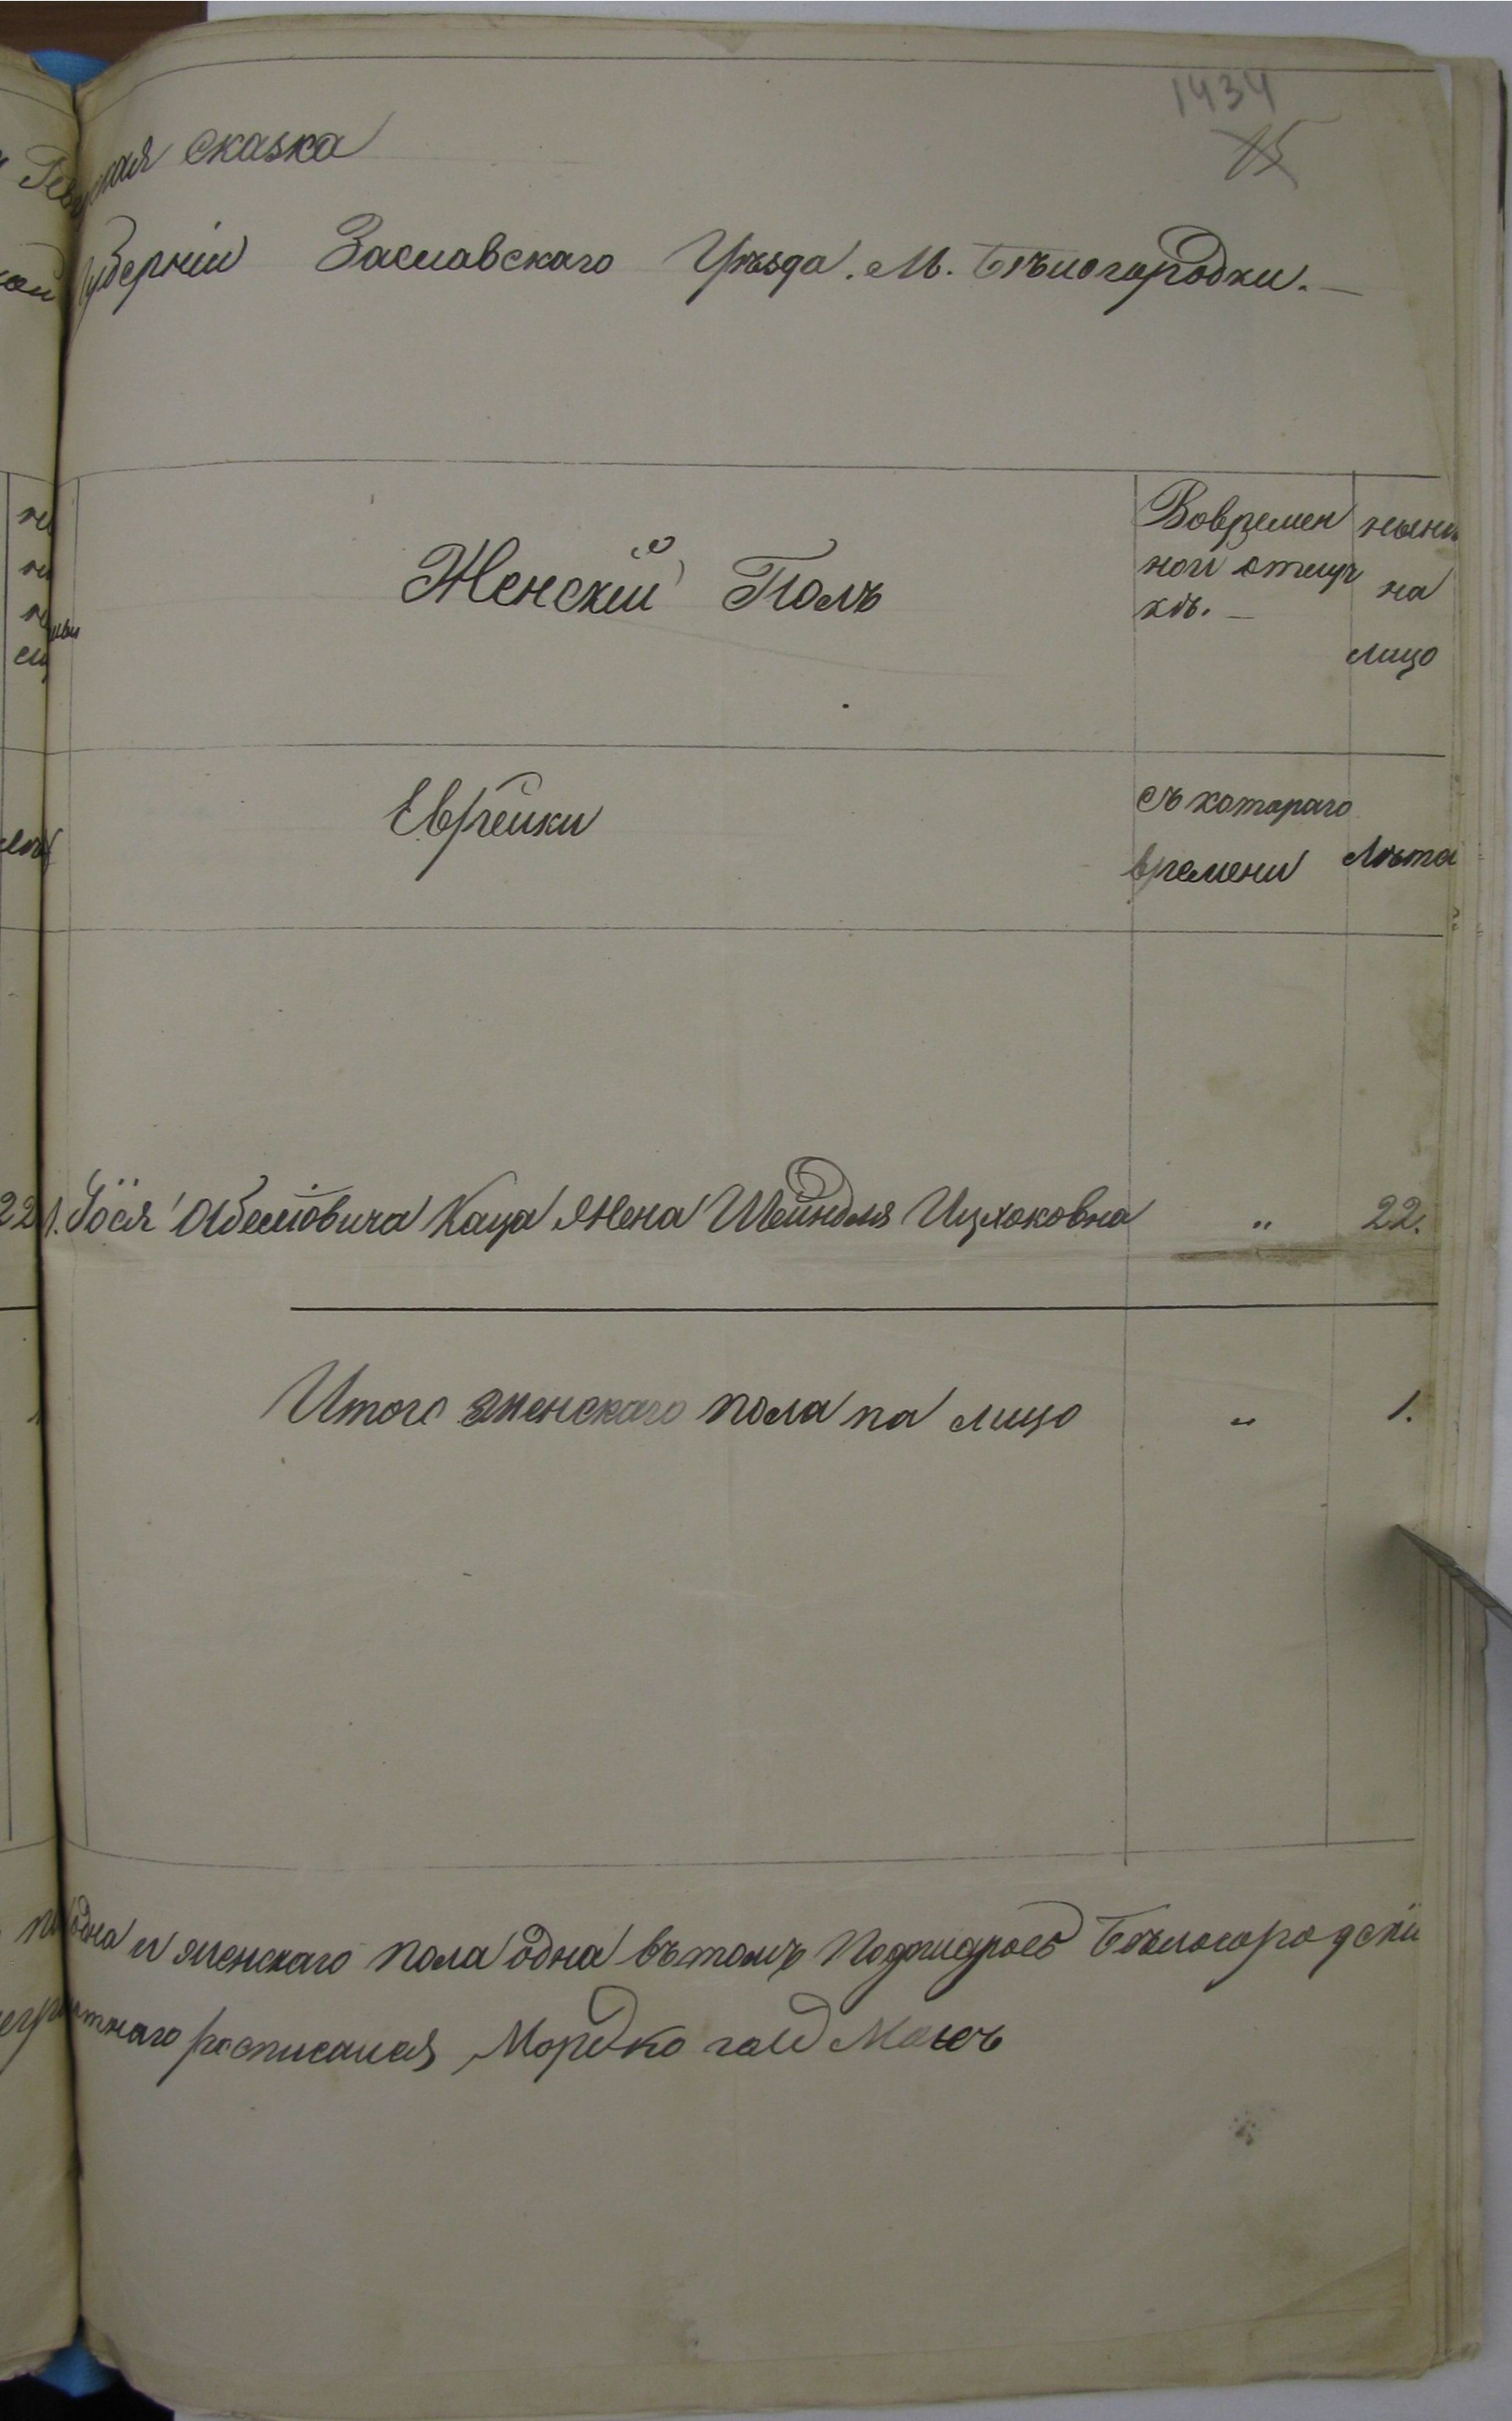 1434
15
сказка
Губернiи Заславскаго Уѣзда. М. Бѣлогородки.
Женскiй Полъ
Вовремен
ной отлуч
кѣ.
нынѣ
на
лицо
Еврейки
съ котораго
времени
Лѣта
22 1. Иося Абелiовича Каца Жена Шейндля Ицхоковна " 22.
Итого женскаго пола на лицо " 1.
одна и женскаго пола одна вътомъ Бѣлогородскiй
росписался Мордко